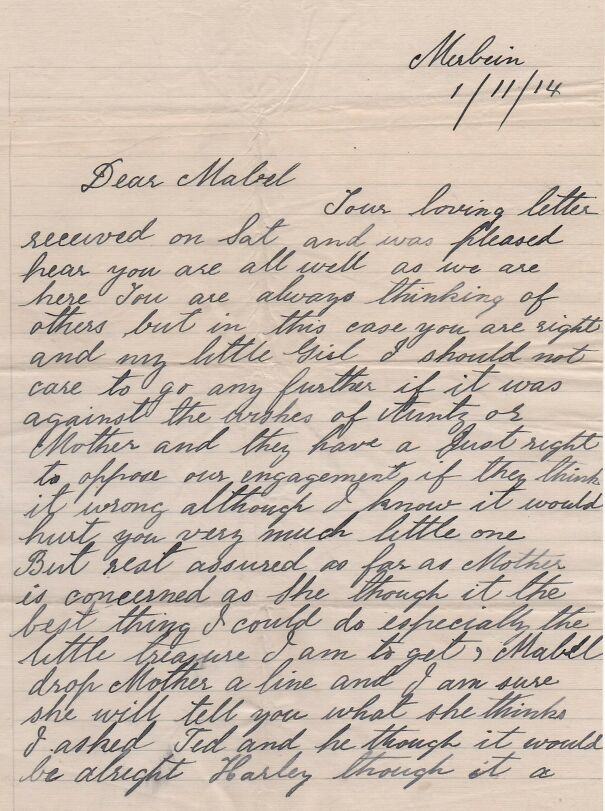 Merbein
1/11/14
Dear Mabel
Your loving letter
received on Sat and was pleased
hear you are all well as we are
here You are always thinking of
others but in this case you are right
and my little Girl I should not
care to go any further if it was
against the wishes of Aunty or
Mother and they have a Just right
to oppose our engagement if they think
it wrong although I know it would
hurt you very much little one
But rest assured as far as Mother
is concerned as She though it the
best thing I could do especially the
little treasure I am to get & Mabel
drop Mother a line and I am sure
she will tell you what she thinks
I asked Ted and he though it would
be alright Harley though it a